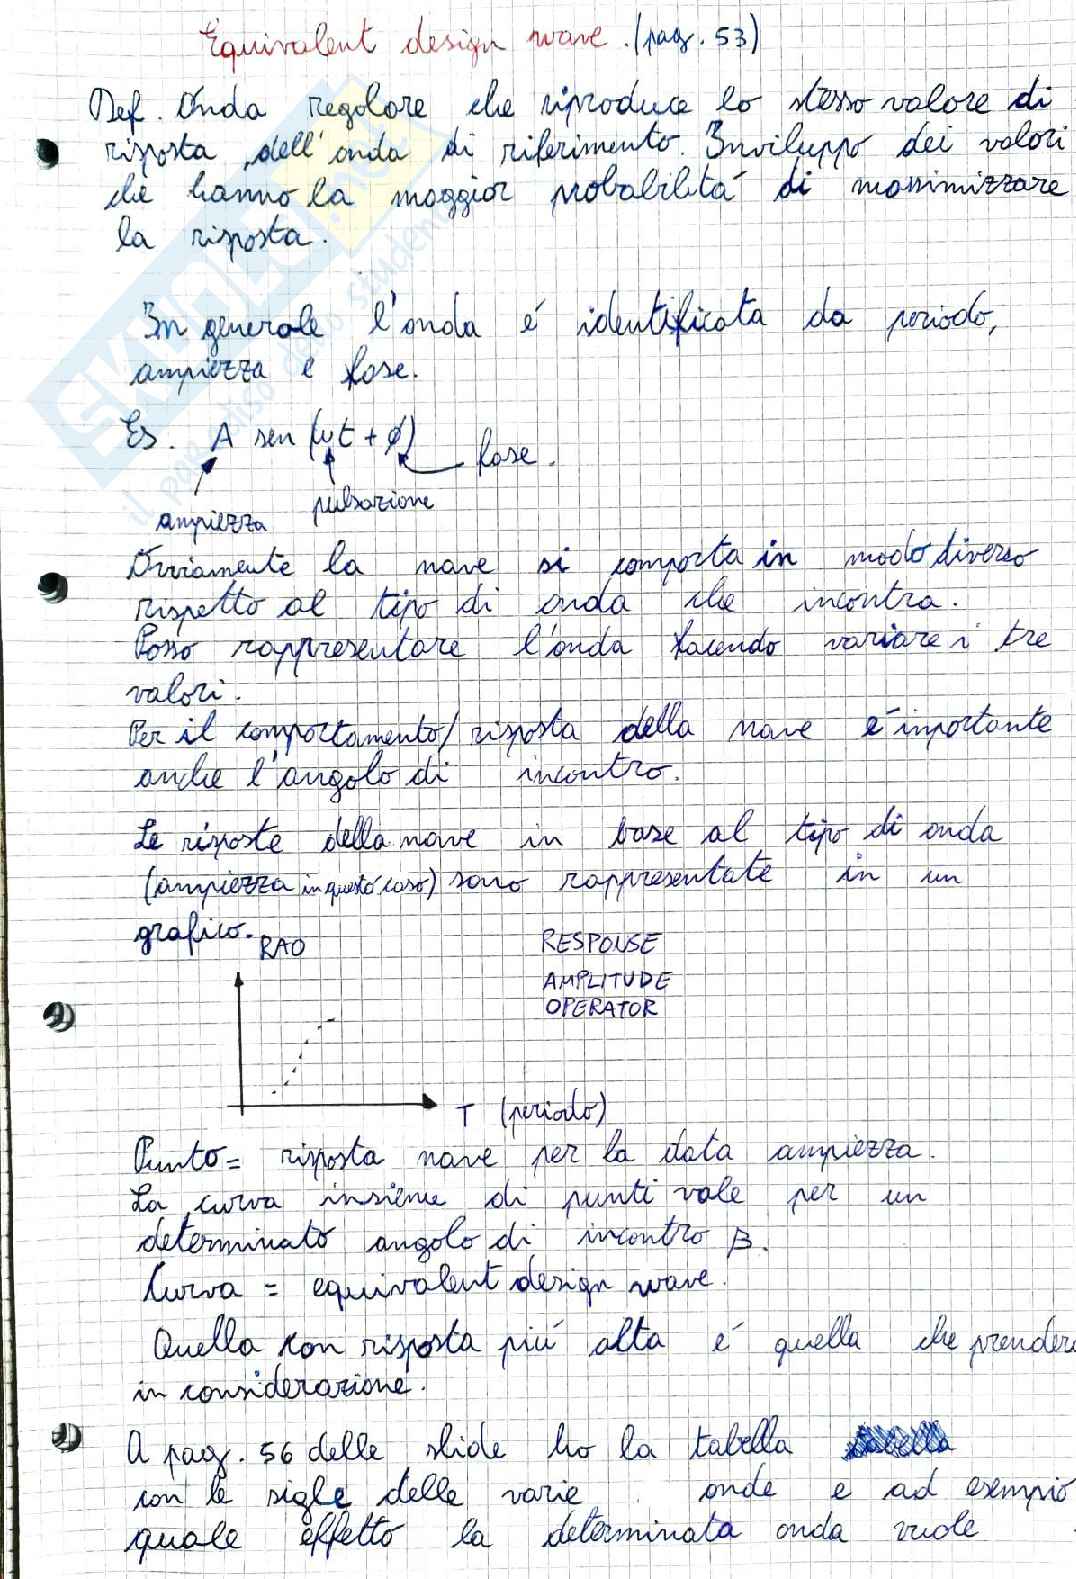 Equivalent design wave. (pag. 53)
Def. Onda regolare che riproduce lo stesso valore di
risposta dell'onda di riferimento. Inviluppo dei valori
che hanno la maggior probabilitá di massimizzare
la risposta.
In generale l'onda é identificata da periodo,
ampiezza e fase.
Es. A sen (ωt + ϕ) fase.
ampiezza pulsazione
Ovviamente la nave si comporta in modo diverso
rispetto al tipo di onda che incontra.
Posso rappresentare l'onda facendo variare i tre
valori.
Per il comportamento/risposta della nave é inportante
anche l'angolo di incontro.
Le risposte della nave in base al tipo di onda
(ampiezza in questo caso) sono rappresentate in un
grafico.
RAO
RESPONSE
AMPLITUDE
OPERATOR
T (periodo)
Punto = risposta nave per la data ampiezza.
La curva insieme di punti vale per un
determinato angolo di incontro β.
Curva = equivalent design wave.
Quella con risposta piú alta é quella che prenderó
in considerazione.
A pag. 56 delle slide ho la tabella
con le sigle delle varie onde e ad esempio
quale effetto la determinata onda vuole
SKUOLA.net
il paradiso dello studente